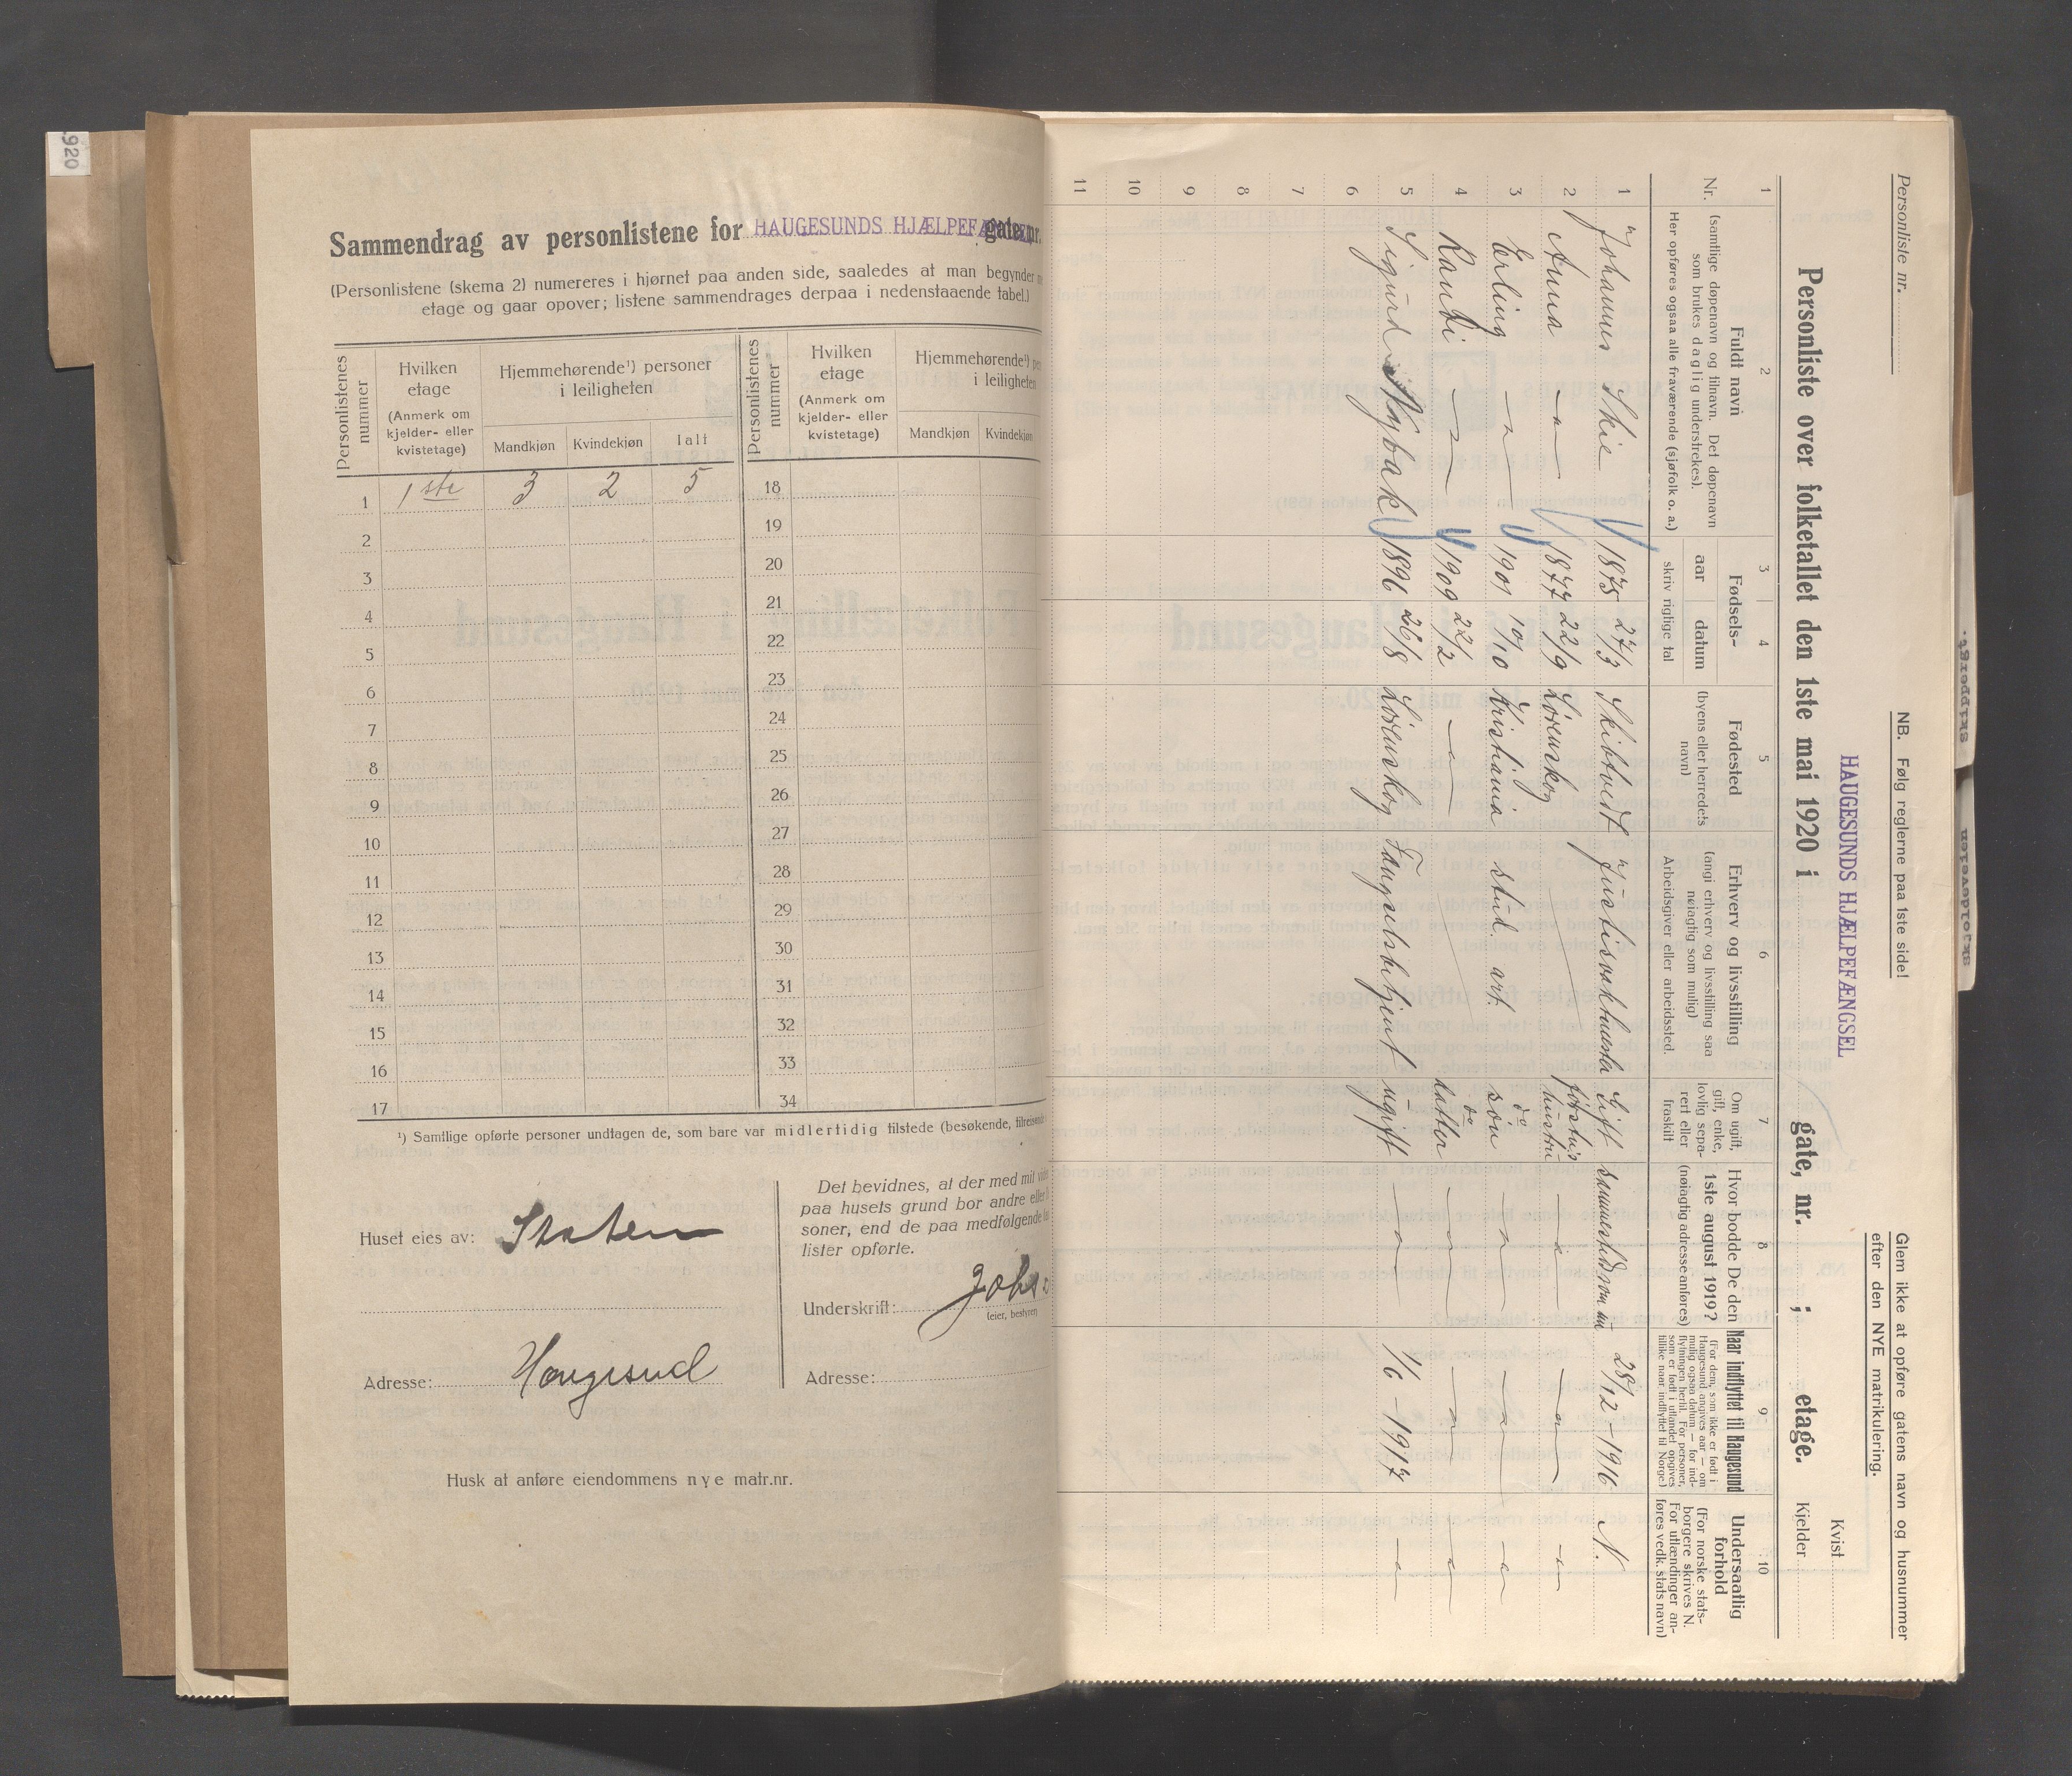 920
Sammendrag av personlistene for HAUGESUNDS HJÆLPEFÆNGSEL gate nr.
(Personlistene (skema 2) numereres i hjørnet paa anden side, saaledes at man begynder
etage og gaar opover; listene sammendrages derpaa i nedenstaaende tabel.)
Personlistenes nummer
Hvilken etage (Anmerk om kjelder- eller kvistetage)
Hjemmehørende¹) personer i leiligheten
Mandkjøn Kvindekjøn Ialt
Personlistenes nummer
Hvilken etage (Anmerk om kjelder- eller kvistetage)
Hjemmehørende¹) i leiligheten
Mandkjøn Kvindekjøn
1 1ste 3 2 5 18
2 19
3 20
4 21
5 22
6 23
7 24
8 25
9 26
10 27
11 28
12 29
13 30
14 31
15 32
16 33
17 34
¹) Samtlige opførte personer undtagen de, som bare var midlertidig tilstede (besøkende, tilreisende
Huset eies av: Staten
Adresse: Haugesund
Det bevidnes, at der med mit
paa husets grund bor andre eller
soner, end de paa medfølgende
lister opførte.
Underskrift: Johs
(eier, bestyrer)
Adresse:
Husk at anføre eiendommens nye matr.nr.
Personliste nr.
NB. Følg reglerne paa 1ste side!
Glem ikke at opføre gatens navn og husnummer
efter den NYE matrikulering.
HAUGESUNDS HJÆLPEFÆNGSEL
Kvist
Personliste over folketallet den 1ste mai 1920 i gate, nr. ; etage.
Kjelder
1 2 3 4 5 6 7 8 9 10
Nr.
Fuldt navn
(samtlige døpenavn og tilnavn. Det døpenavn
som brukes daglig understrekes).
Her opføres ogsaa alle fraværende (sjøfolk o. a.)
Fødsels-
aar datum
skriv rigtige tal
Fødested
(byens eller herredets
navn)
Erhverv og livsstilling
(angi erhverv og livsstilling saa
nøiagtig som mulig)
Arbeidsgiver eller arbeidssted.
Om ugift,
gift, enke,
lovlig sepa-
rert eller
fraskilt
Hvor bodde De den
1ste august 1919?
(nøiagtig adresse anføres)
Naar indflyttet til Haugesund
(For dem, som ikke er født i
Haugesund angives aar — om
mulig ogsaa datum — for ind-
flytningen hertil. For personer,
som er født i utlandet opgives
tillike naar indflyttet til Norge)
Undersaatlig
forhold
(For norske stats-
borgere skrives N.
For utlændinger an-
føres vedk. stats navn)
1 Johannes Skie 1875 27/3 Skibtvedt Gift 28/12-1916 N.
2 Anna —"— 1877 22/9 Lørenskog hustru —"— —"— —"—
3 Erling —"— 1901 10/10 Kristiania stud. art. do søn —"— —"— —"—
4 Randi —"— 1909 22/2 —"— do datter —"— —"— —"—
5 Sigurd Nybak 1896 26/8 Lørenskog Fængselsbetjent ugift —"— 1/6-1917 —"—
6
7
8
9
10
11
Skipperst.
Skjoldaveien